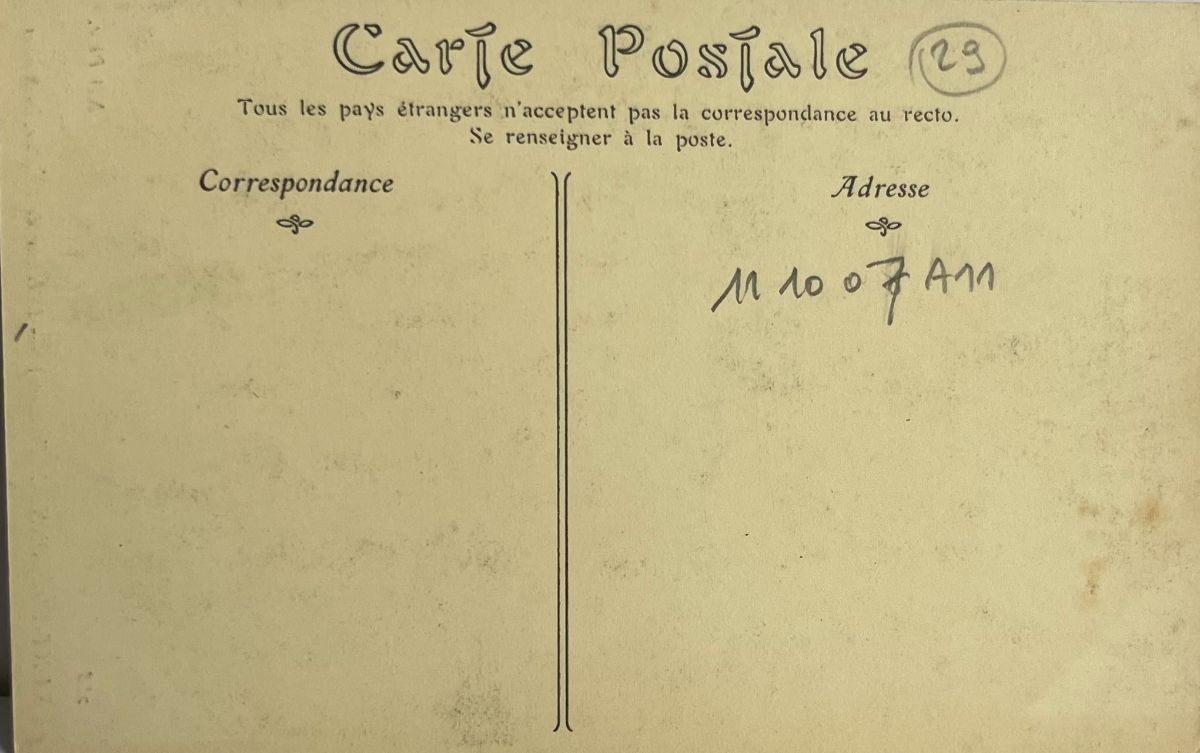 Carte Postale 29
Tous les pays étrangers n'acceptent pas la correspondance au recto.
Se renseigner à la poste.
Correspondance
Adresse
11 10 07 A11